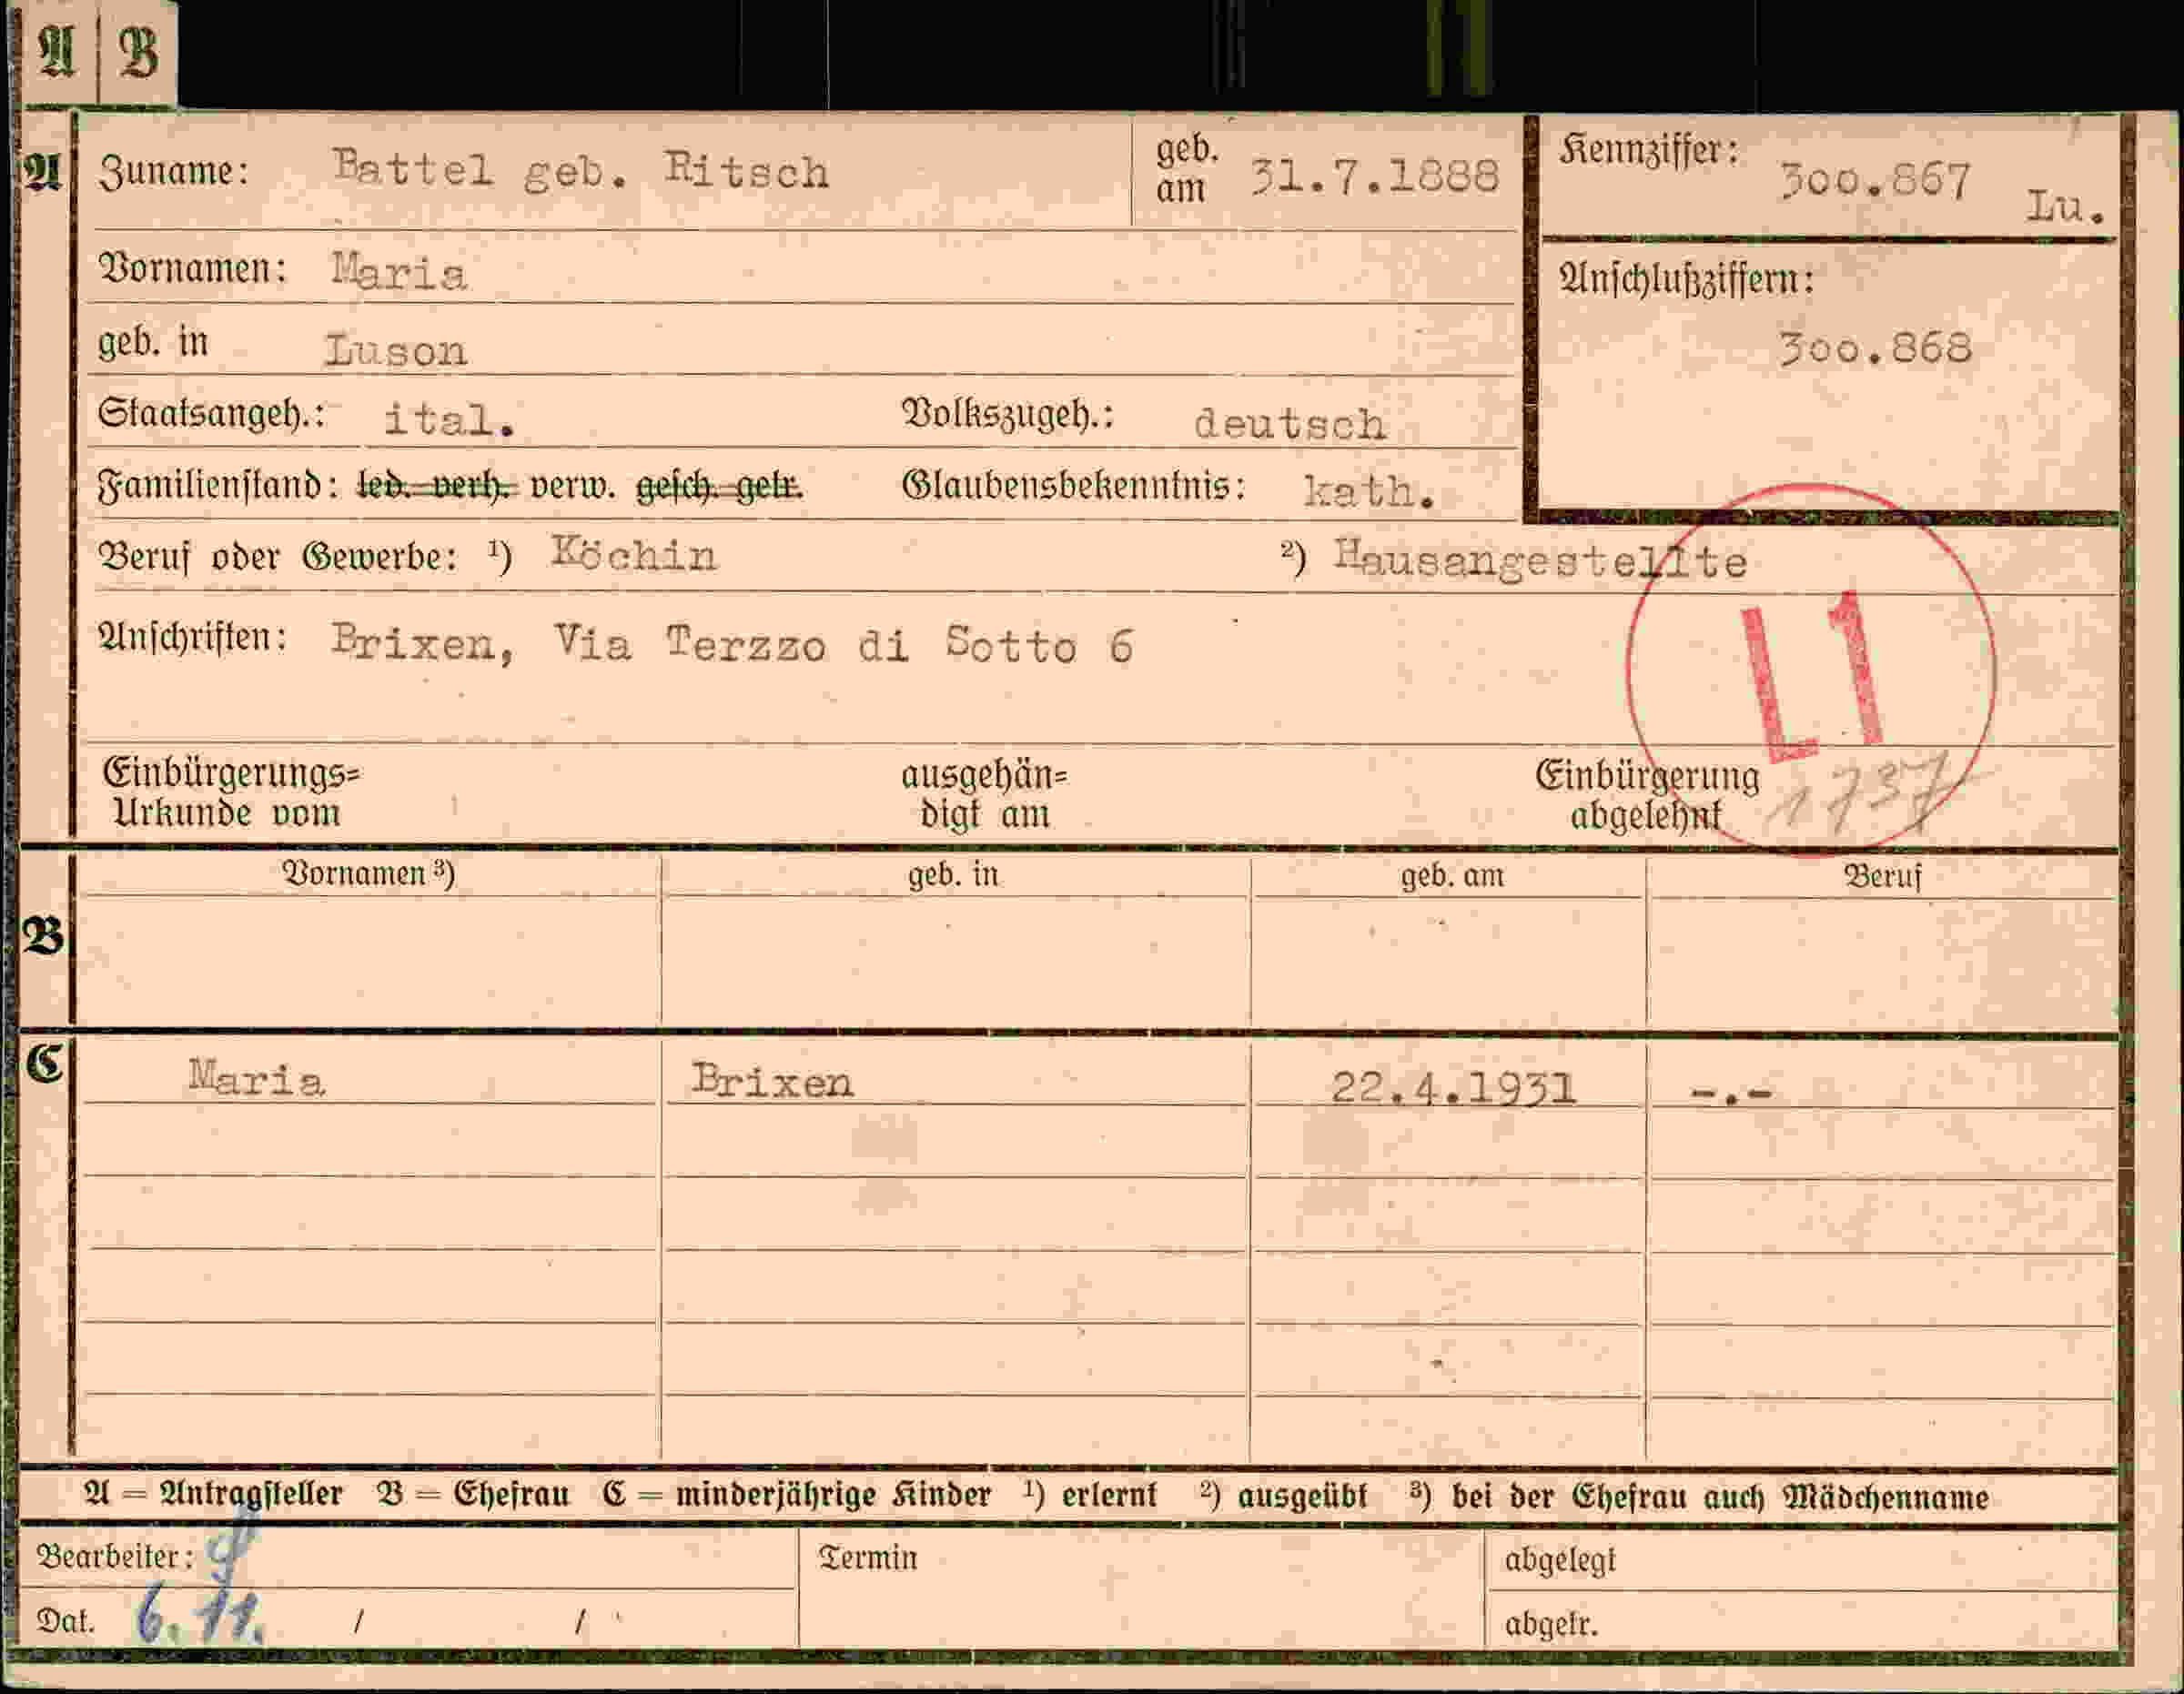 A B
A Zuname: Battel geb. Ritsch geb. am 31.7.1888 Kennziffer: 300.867 Lu.
Vornamen: Maria Anschlußziffern:
geb. in Luson 300.868
Staatsangeh.: ital. Volkszugeh.: deutsch
Familienstand: led. verh. verw. gesch. getr. Glaubensbekenntnis: kath.
Beruf oder Gewerbe: ¹) Köchin ²) Hausangestellte
Anschriften: Brixen, Via Terzzo di Sotto 6
L1
Einbürgerungs= ausgehän= Einbürgerung
Urkunde vom digt am abgelehnt 1737
Vornamen ³) geb. in geb. am Beruf
B
C Maria Brixen 22.4.1931 -.-
A = Antragsteller B = Ehefrau C = minderjährige Kinder ¹) erlernt ²) ausgeübt ³) bei der Ehefrau auch Mädchenname
Bearbeiter: Termin abgelegt
Dat. 6.11. / / abgetr.